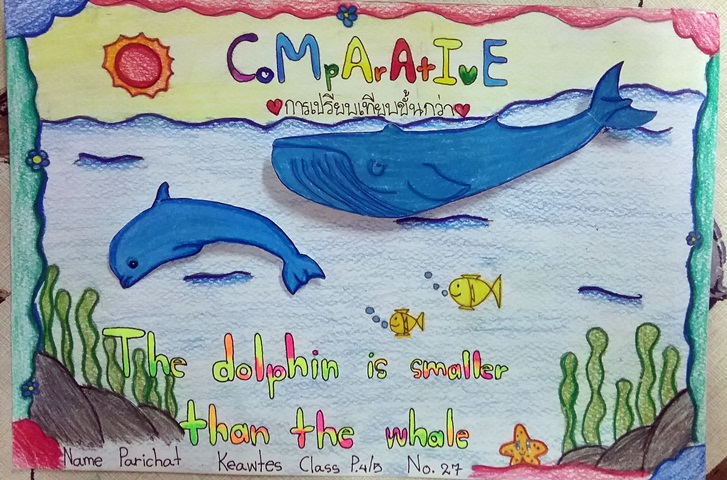 CoMpArAtIvE
การเปรียบเทียบขั้นกว่า
The dolphin is smaller
than the whale
Name Parichat Keawtes Class P.4/5 No. 27